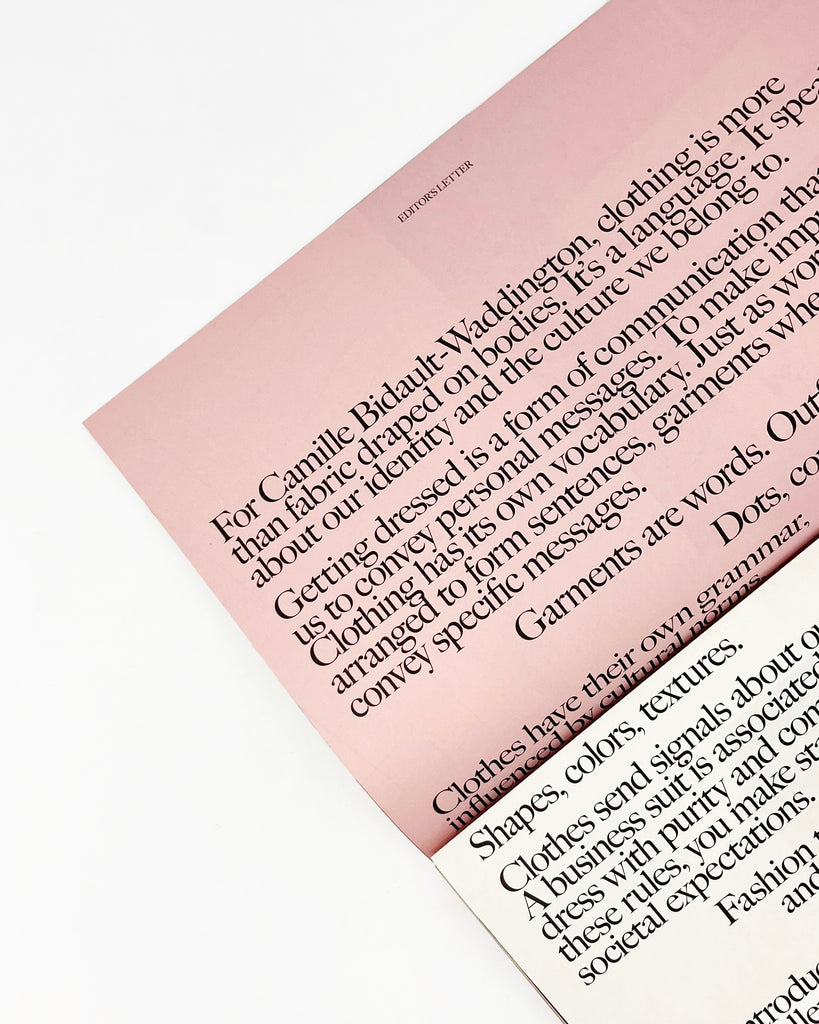 EDITOR'S LETTER
For Camille Bidault-Waddington, clothing is more
than fabric draped on bodies. It's a language. It
about our identity and the culture we belong to.
Getting dressed is a form of communication
us to convey personal messages. To make
Clothing has its own vocabulary. Just as
arranged to form sentences, garments
convey specific messages.
Garments are words.
Dots,
Clothes have their own grammar,
influenced by cultural norms.
Shapes, colors, textures.
Clothes send signals about
A business suit is associated
dress with purity and
these rules, you make
societal expectations.
Fashion
and